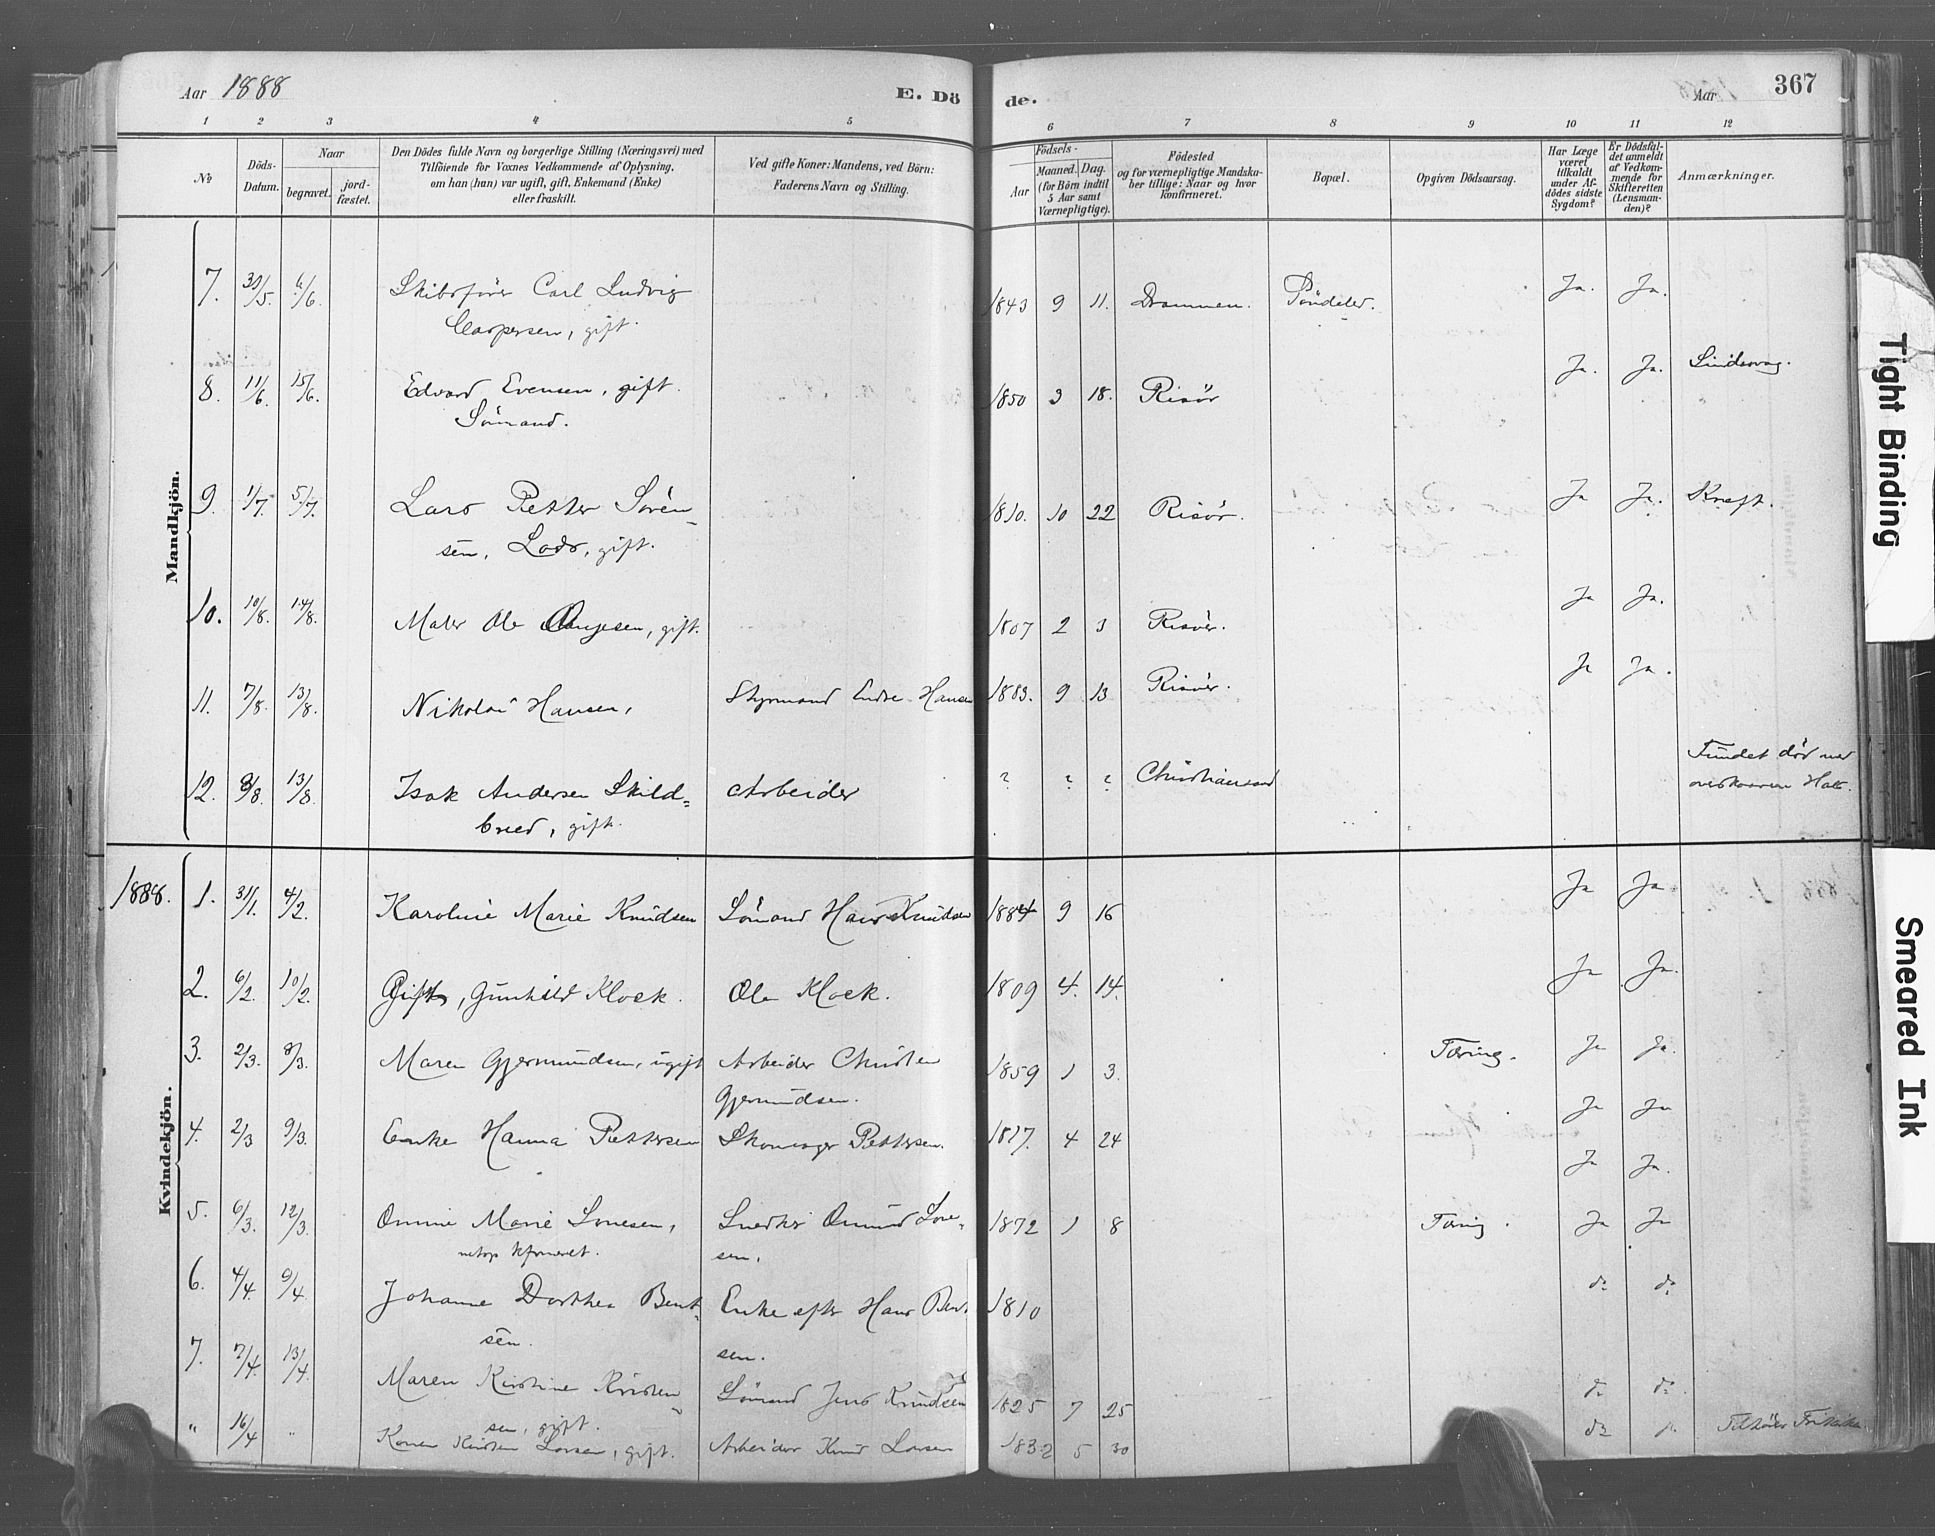 Aar 1888
E. Dö
de.
Aar
367
1 2 3 4 5 6 7 8 9 10 11 12
No
Döds-
Datum.
Naar
begravet.
jord-
fæstet.
Den Dödes fulde Navn og borgerlige Stilling (Næringsvei) med
Tilföiende for Voxnes Vedkommende af Oplysning,
om han (hun) var ugift, gift, Enkemand (Enke)
eller fraskilt.
Ved gifte Koner: Mandens, ved Börn:
Faderens Navn og Stilling.
Födsels-
Aar
Maaned. Dag.
(for Börn indtil
5 Aar samt
Værnepligtige).
Födested
og for værnepligtige Mandska-
ber tillige: Naar og hvor
konfirmeret.
Bopæl.
Opgiven Dödsaarsag.
Har Læge
været
tilkaldt
under Af-
dödes sidste
Sygdom?
Er Dödsfal-
det anmeldt
af Vedkom-
mende for
Skifteretten
(Lensman-
den)?
Anmærkninger.
Mandkjön.
7. 30/5. 6/6. Skibsfører Carl Ludvig 1843 9 11. Drammen. Söndeled. Ja. Ja.
Caspersen, gift.
8. 11/6. 15/6. Edvard Evensen, gift. 1850 3 18. Risör Ja. Ja.
Sömand.
9. 1/7. 5/7. Lars Petter Sören- 1810. 10 22 Risör. Ja Ja. Kræft.
sen, Lods, gift.
10. 10/8. 14/8. Maler Ole gift. 1807 2 3 Risör. Ja Ja.
11. 7/8. 13/8. Nikolai Hansen, Styrmand Endre Hansen 1883. 9 13 Risör. Ja Ja.
12. 8/8. 13/8. Isak Andersen Skild= Arbeider ? ? ? Christiansand Fundet död med
bred, gift. overskaaren Hals.
Kvindekjön.
1888. 1. 31/1. 4/2. Karoline Marie Knudsen Sömand Hans Knudsen 1884 9 16 Ja Ja
2. 6/2. 10/2. Gift, Gunhild Klock. Ole Klock. 1809 4. 14. Ja Ja.
3. 2/3. 8/3. Maren Gjermundsen, ugift Arbeider Christen 1859 1 3. Tæring. Ja Ja.
Gjermundsen.
4. 2/3 9/3. Enke Hanna Pettersen Skomager Pettersen. 1817. 4 24 Ja Ja
Ja Ja.
5. 6/3. 12/3. Marie Snedker 1872 1 8 Tæring. Ja Ja
sen.
6. 4/4. 9/4. Johanne Dorthea Bent- Enke efter Hans Bent- 1810 do do
sen. sen.
7. 7/4. 13/4. Maren Kirstine Kristen- Sömand Jens Knudsen 1825 7 25 do do
sen, gift.
" 16/4 " Karen Kirsten Larsen, gift. Arbeider Knud Larsen 1832 5 30 do Tilhörer Frikirken
Tight Binding
Smeared Ink